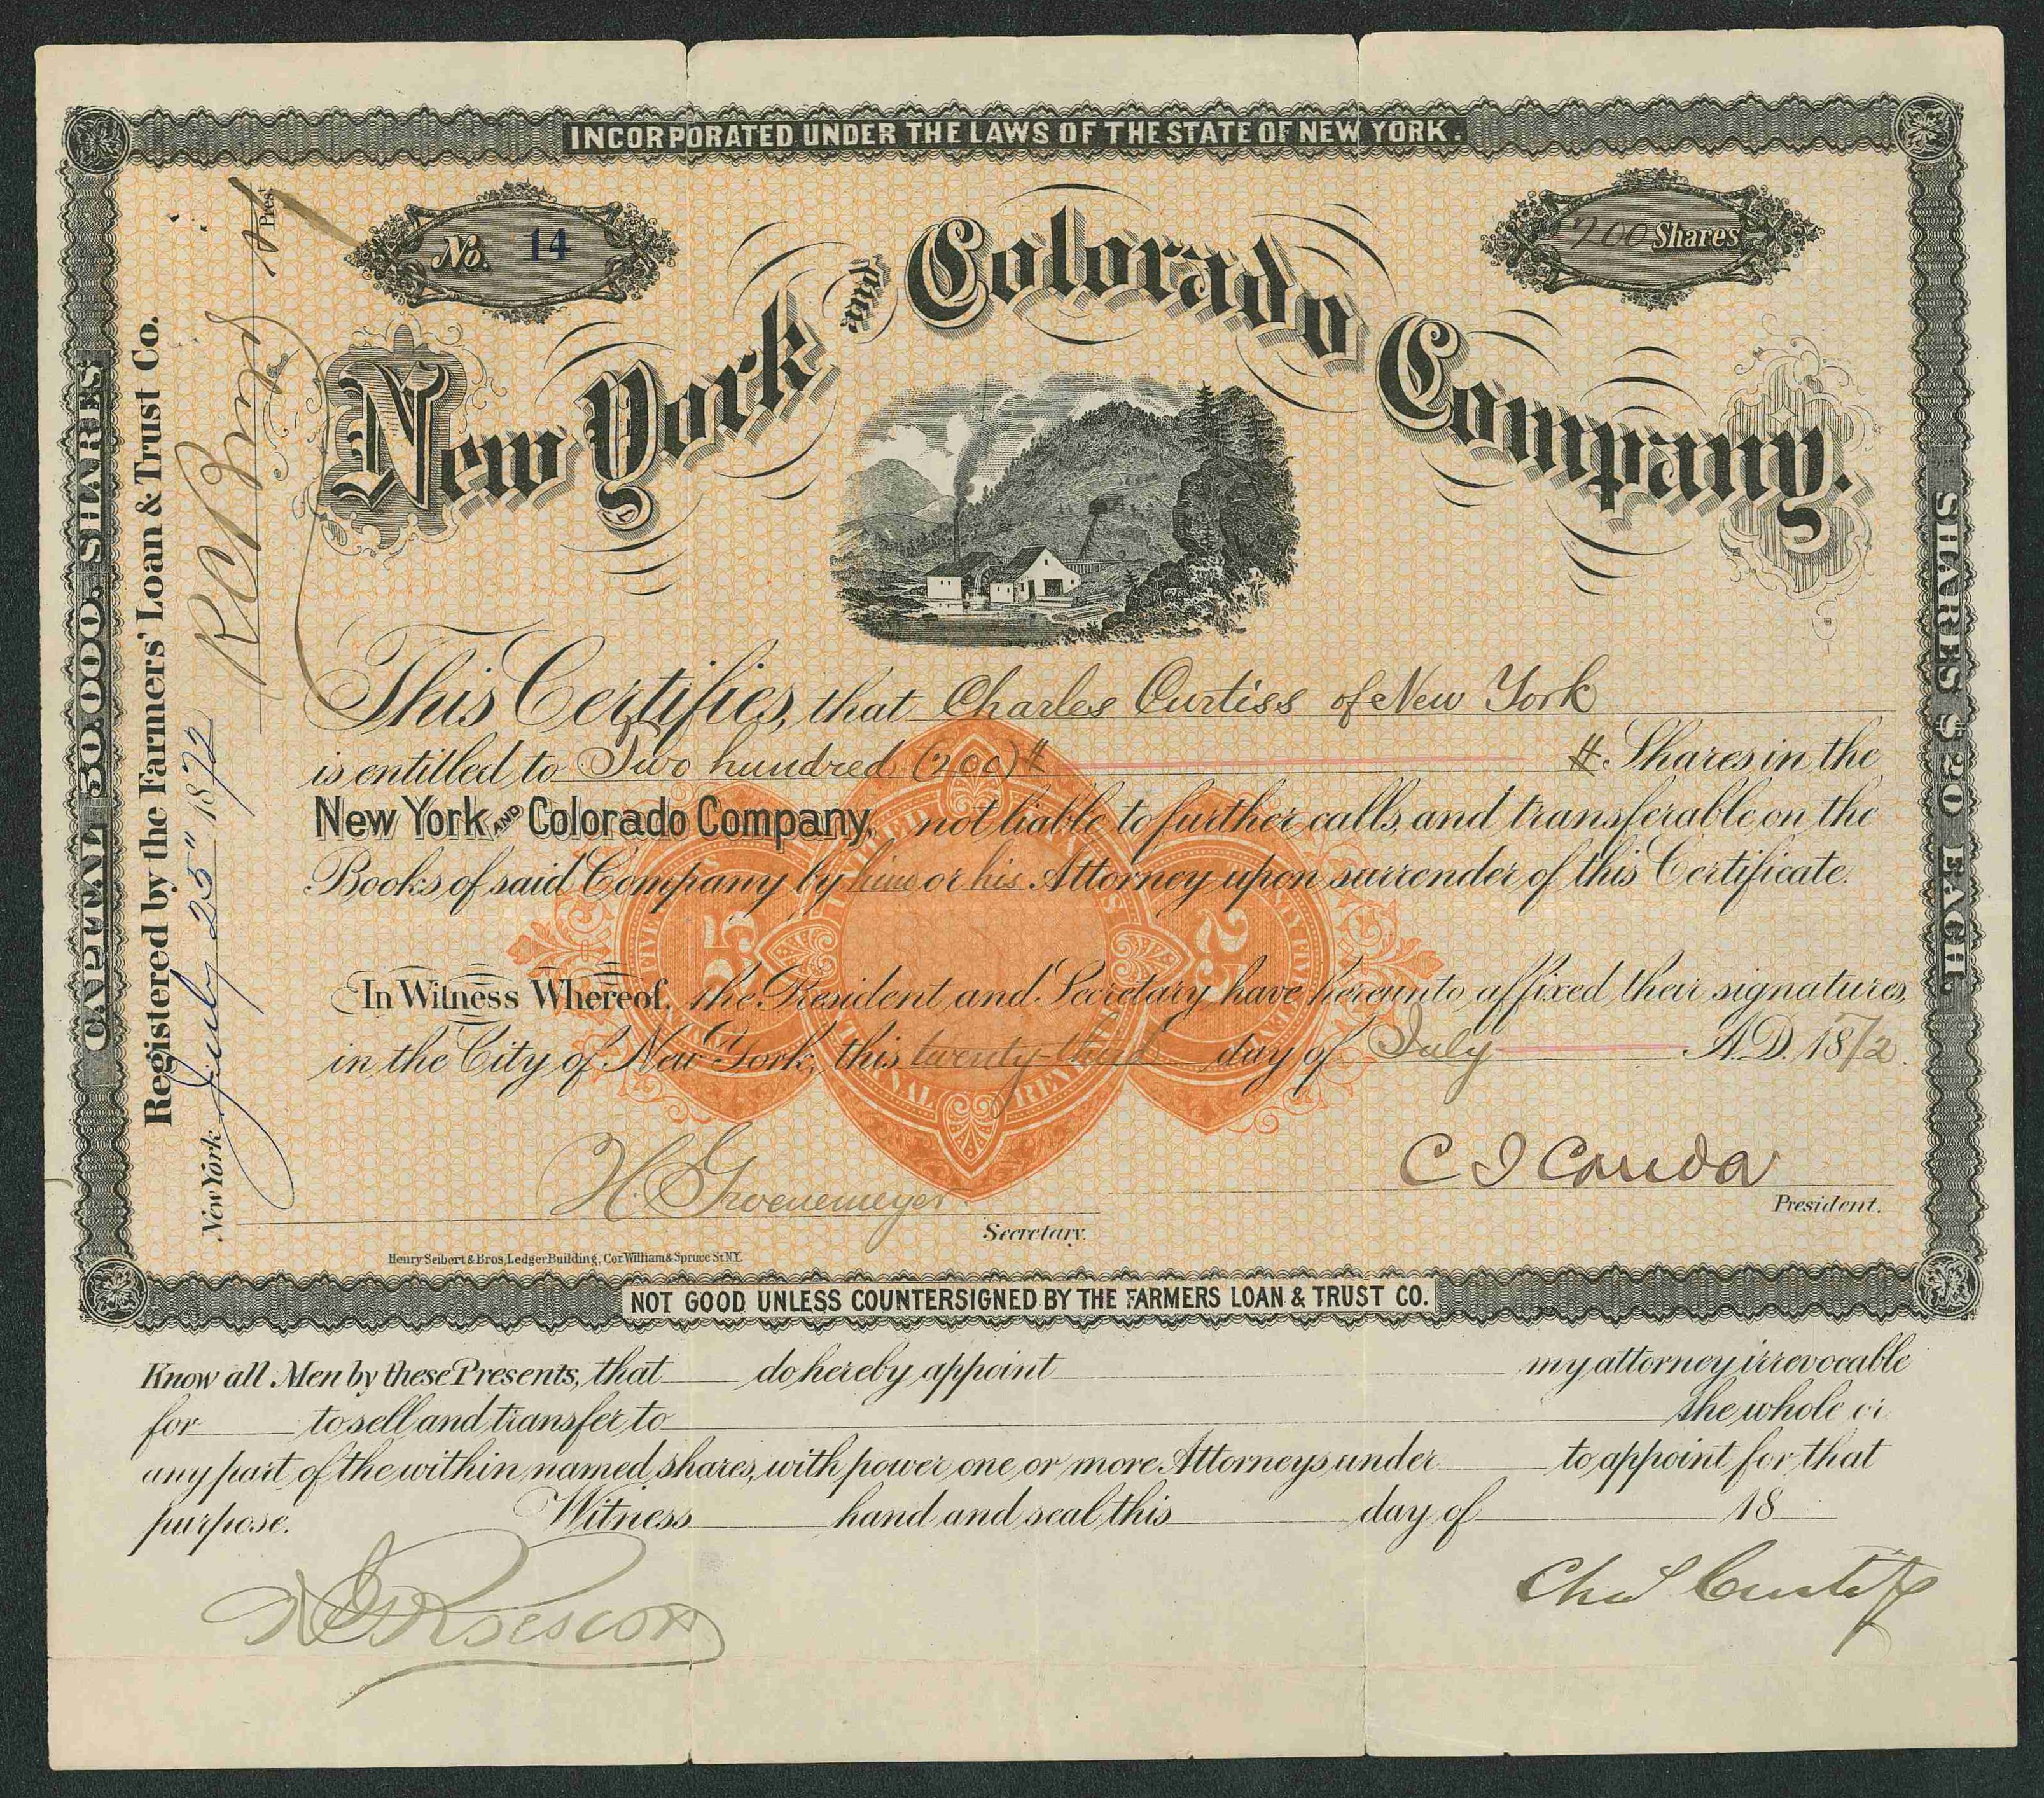 INCORPORATED UNDER THE LAWS OF THE STATE OF NEW YORK.
No. 14
200 Shares
New York and Colorado Company.
This Certifies, that Charles Curtiss of New York
is entitled to Two hundred (200) # # Shares in the
New York AND Colorado Company, not liable to further calls, and transferable on the
Books of said Company by him or his Attorney upon surrender of this Certificate.
In Witness Whereof, the President and Secretary have hereunto affixed their signatures,
in the City of New York, this twenty-third day of July A.D. 1872.
H. Groenemeyer
Secretary.
C I Canda
President.
Henry Seibert & Bros. Ledger Building, Cor. William & Spruce St. N.Y.
NOT GOOD UNLESS COUNTERSIGNED BY THE FARMERS LOAN & TRUST CO.
CAPITAL 30.000. SHARES
Registered by the Farmers' Loan & Trust Co.
New York July 25" 1872
Pres.t
SHARES $20 EACH
UNITED STATES
INTERNAL REVENUE
25
25
Know all Men by these Presents, that do hereby appoint my attorney irrevocable
for to sell and transfer to the whole or
any part of the within named shares, with power one or more Attorneys under to appoint for that
purpose. Witness hand and seal this day of 18
Chas Curtiss